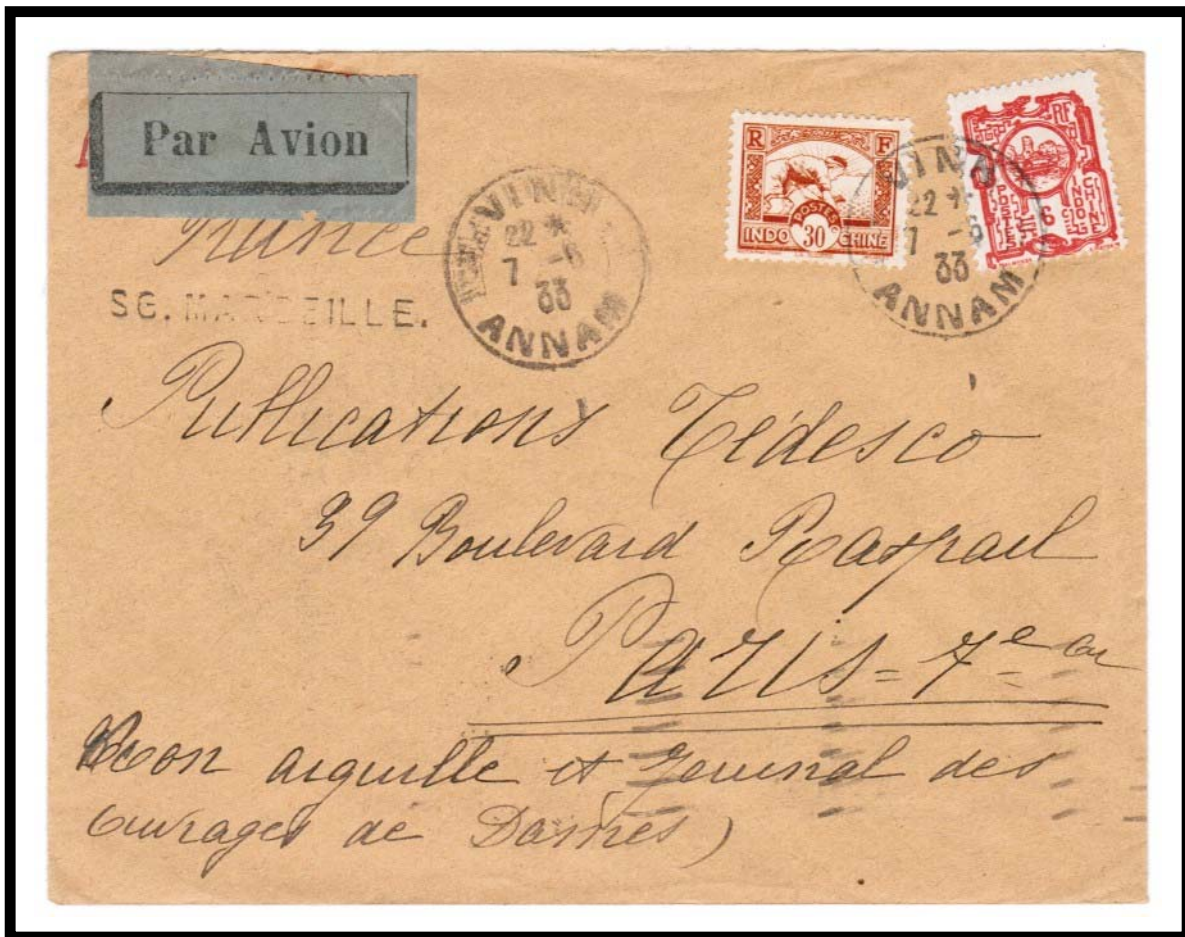 Par Avion
France
SG. MARSEILLE.
VINH
22 *
7 -6
33
ANNAM
R F
POSTES
INDO 30 CHINE
VINH
22 *
7 -6
33
ANNAM
RF
INDO
CHINE
POSTES
6
Publications Tédesco
39 Boulevard Raspail
Paris = 7e
aiguille et Journal des
Ouvrages de Dames)